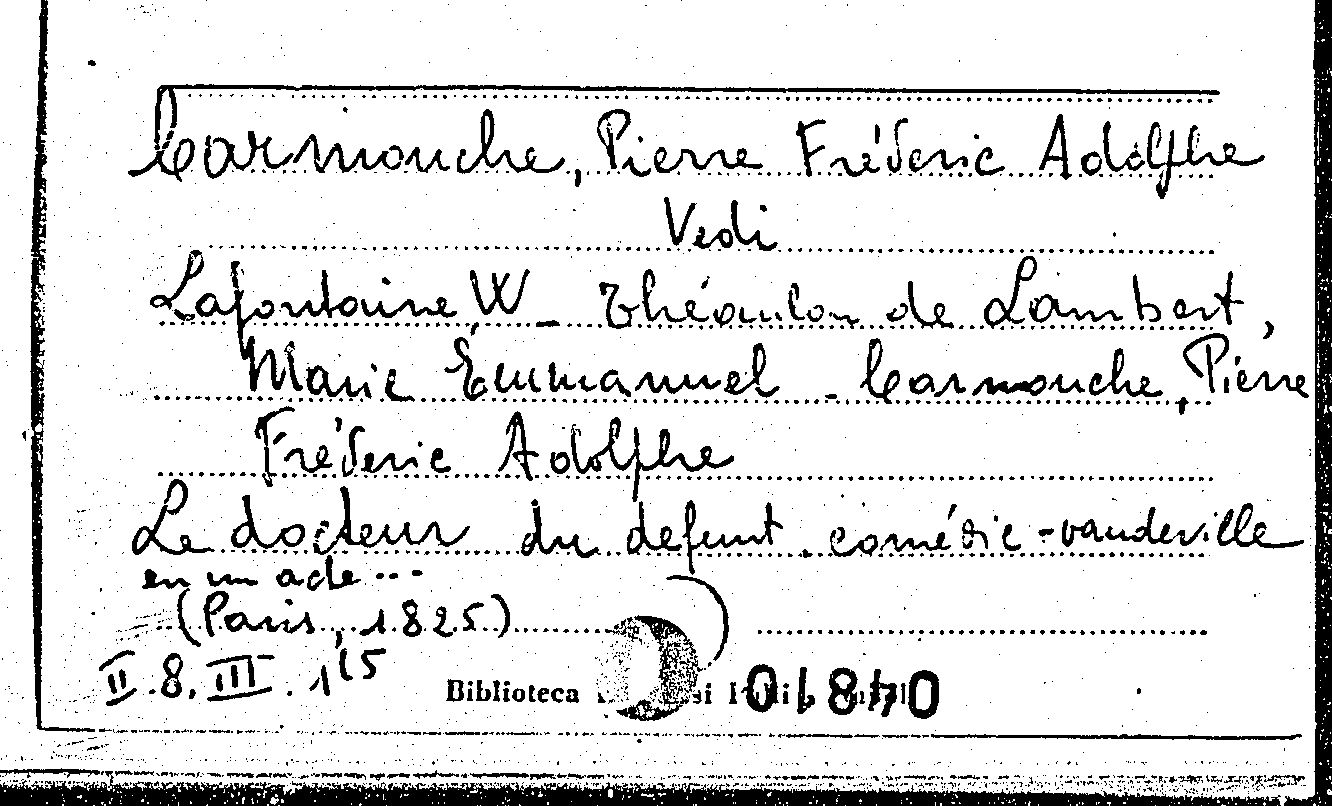 Carmouche, Pierre Fréderic Adolphe
Vedi
Lafontaine W - Théaulon de Lambert,
Marie Emmanuel - Carmouche, Pierre
Fréderic Adolphe
Le docteur du defunt. comédie-vaudeville
en un acte...
(Paris, 1825)
II.8.III.1¹⁵
Biblioteca
04810